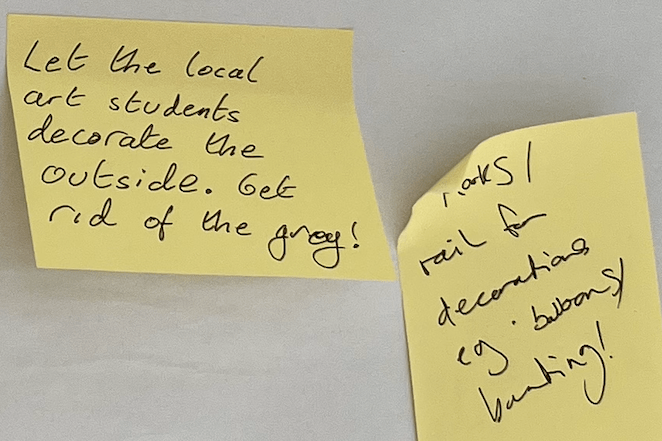 Let the local
art students
decorate the
outside. Get
rid of the grey!
rail for
decorations
eg. balloons/
bunting!